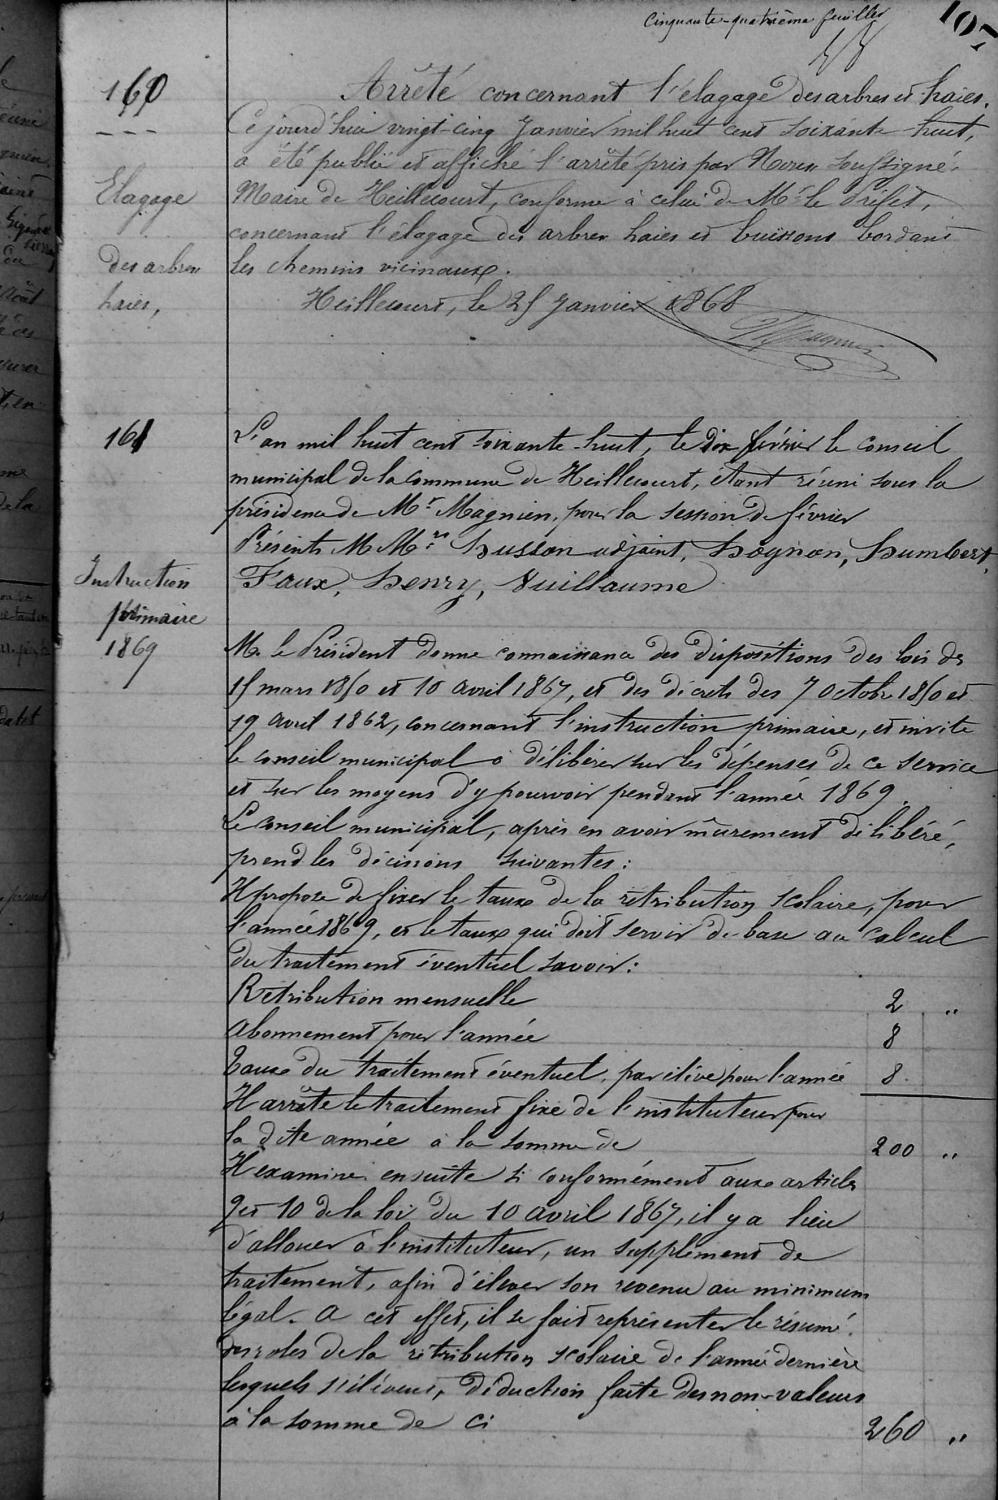 Cinquante-quatrième feuillet
107
160
Elagage
des arbres
haies,
Arrêté concernant l'élagage des arbres et haies.
Ce jourd'hui vingt-cinq Janvier mil huit cent soixante huit,
a été publié et affiché l'arrêté pris par Nous soussigné,
Maire de Heillecourt, conforme à celui de Mr le Préfet,
concernant l'élagage des arbres haies et buissons bordant
les chemins vicinaux.
Heillecourt, le 25 Janvier 1868
Magnien
161
Instruction
primaire
1869
L'an mil huit cent soixante-huit, le dix février le conseil
municipal de la commune de Heillecourt, étant réuni sous la
présidence de Mr Magnien, pour la session de février
Présents M Mrs Husson adjoint, Hognon, Humbert,
Faux, Henry, Vuillaume
Mr le Président donne connaissance des dispositions des lois des
15 mars 1850 et 10 avril 1867, et des décrets des 7 Octobre 1850 et
19 avril 1862, concernant l'instruction primaire, et invite
le conseil municipal à délibérer sur les dépenses de ce service
et sur les moyens d'y pourvoir pendant l'année 1869.
Le Conseil municipal, après en avoir mûrement délibéré,
prend les décisions suivantes:
Il propose de fixer le taux de la rétribution scolaire, pour
l'année 1869, et le taux qui doit servir de base au calcul
du traitement éventuel savoir:
Rétribution mensuelle 2 "
Abonnement pour l'année 8
Taux du traitement éventuel, par élève pour l'année 8
Il arrête le traitement fixe de l'instituteur pour
la dite année à la somme de 200 "
Il examine ensuite si conformément aux articles
9 et 10 de la loi du 10 avril 1867, il y a lieu
d'allouer à l'instituteur, un supplément de
traitement, afin d'élever son revenu au minimum
légal. A cet effet, il se fait représenter le résumé
des roles de la rétribution scolaire de l'année dernière
lesquels s'élèvent, déduction faite des non-valeurs
à la somme de ci 260 "